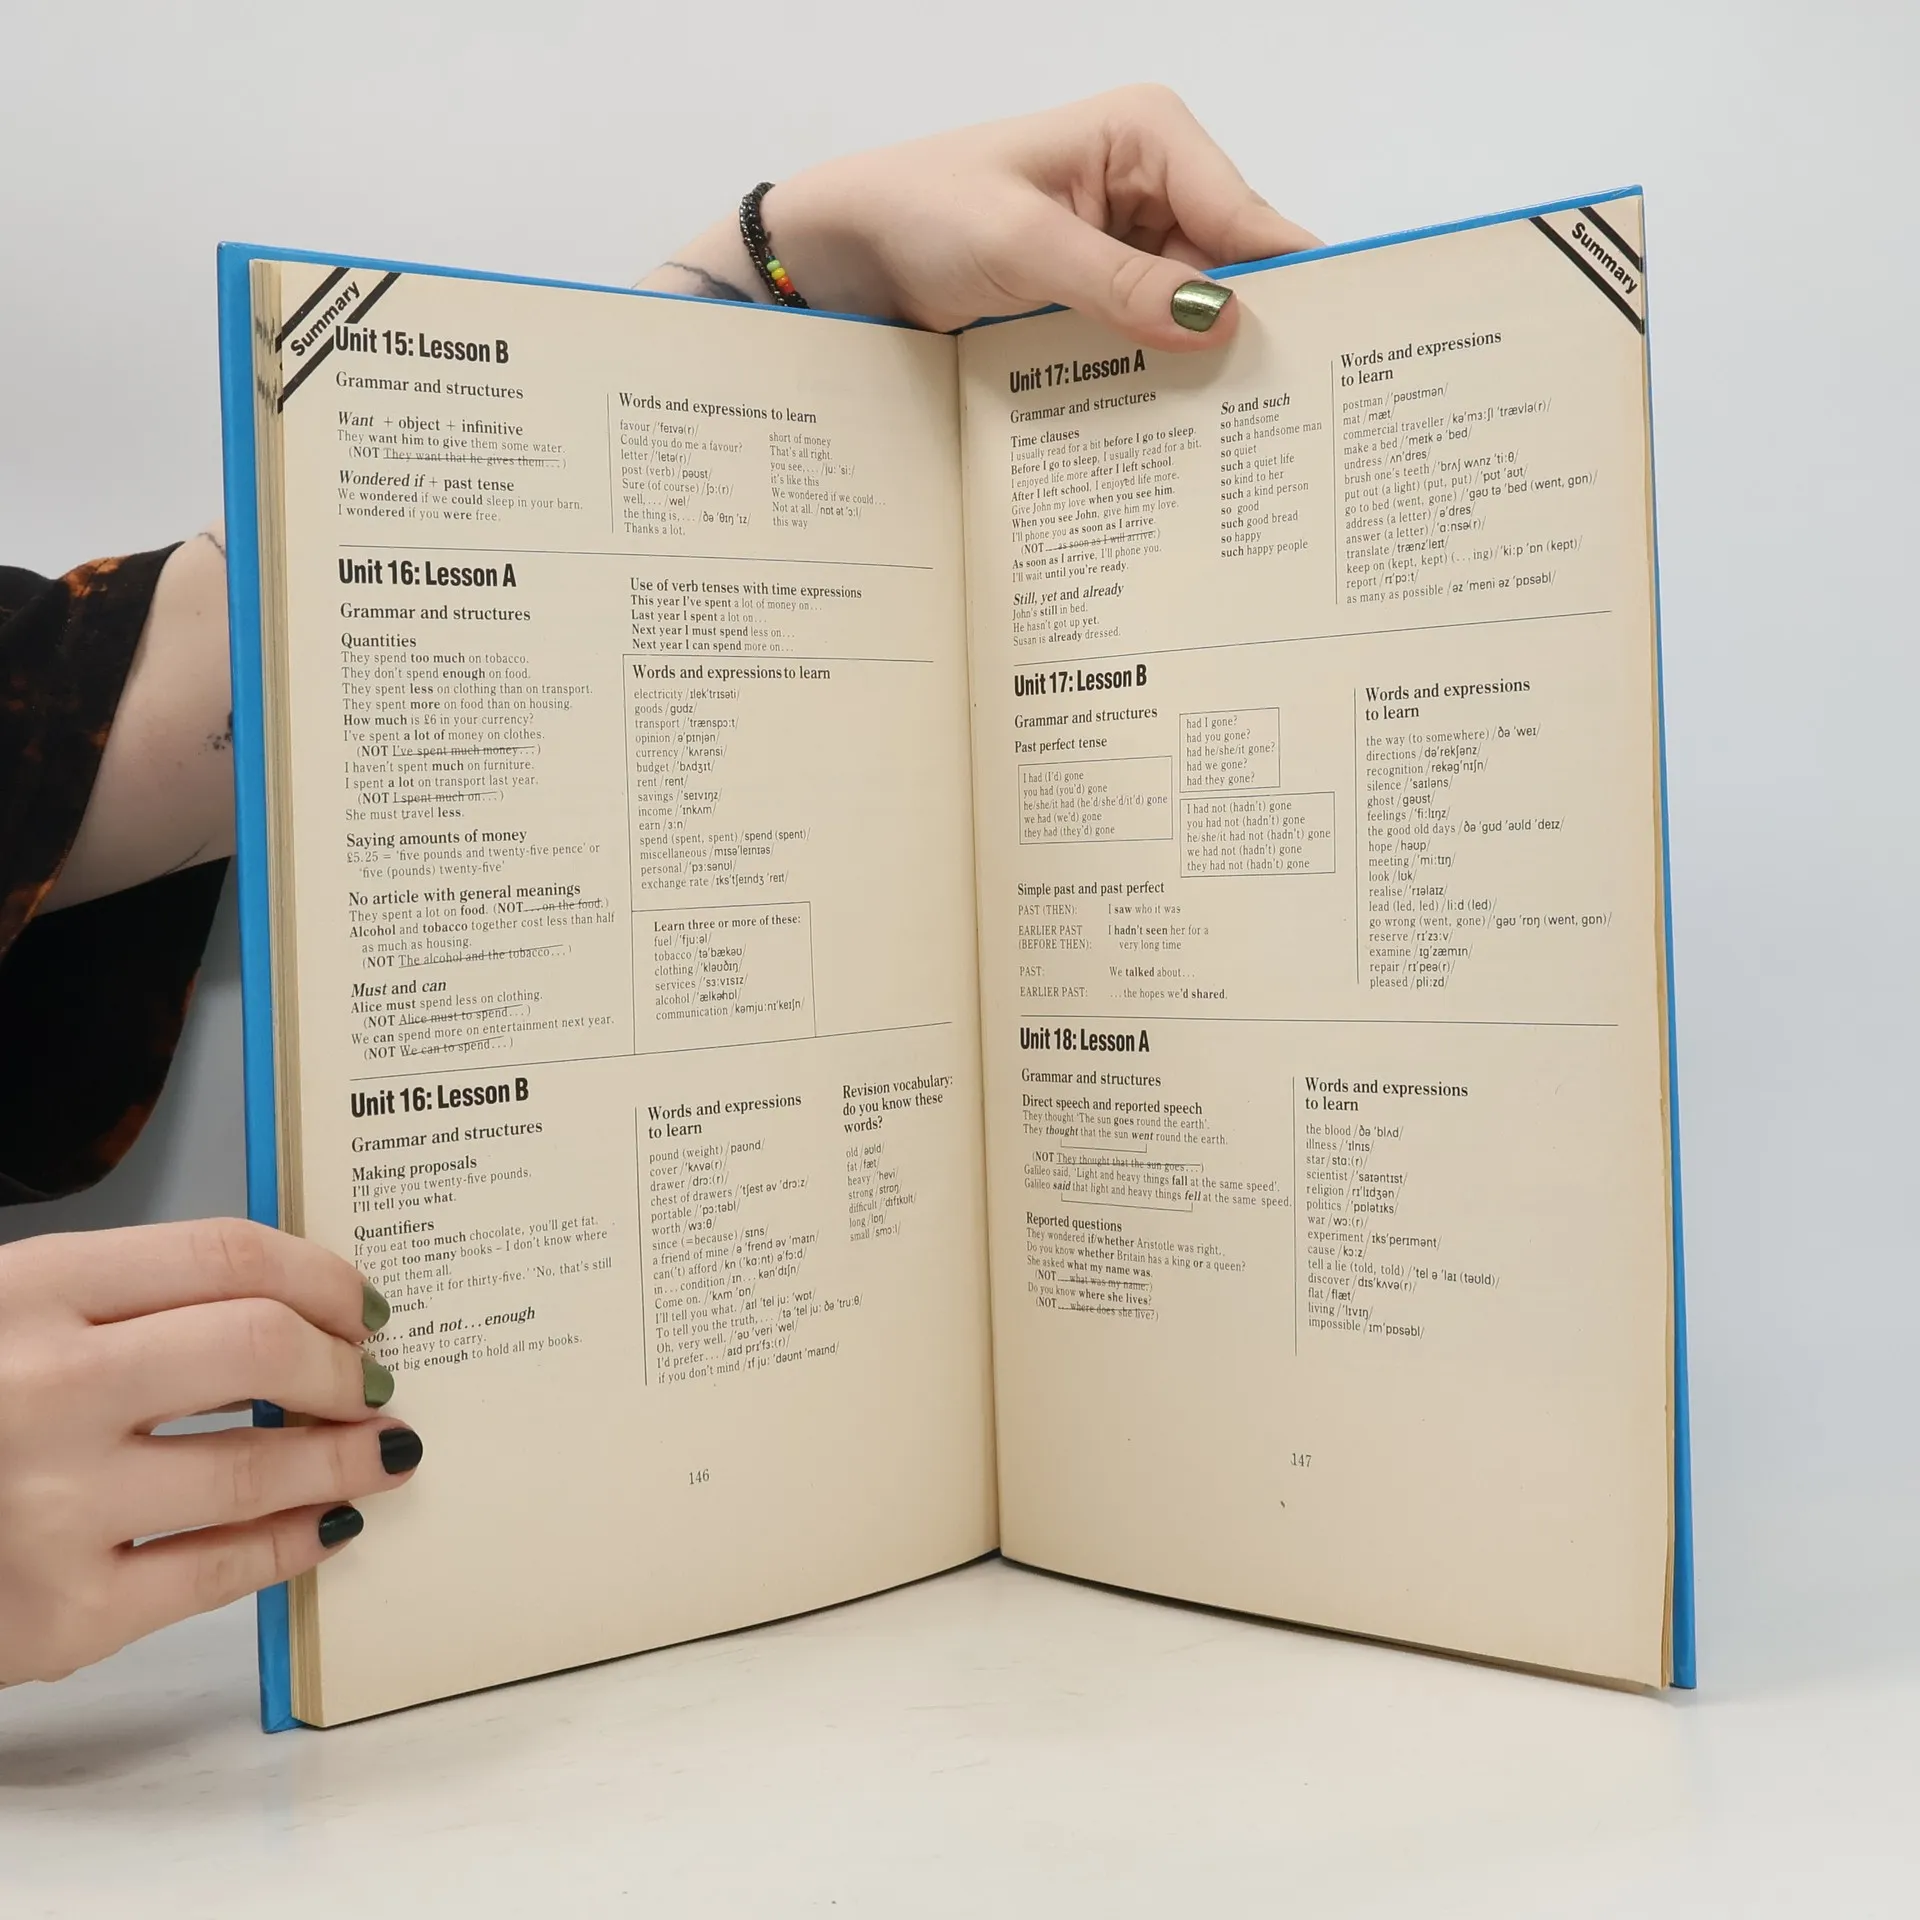 Summary
Unit 15: Lesson B
Grammar and structures
Want + object + infinitive
They want him to give them some water.
(NOT They want that he gives them...)
Wondered if + past tense
We wondered if we could sleep in your barn.
I wondered if you were free.
Words and expressions to learn
favour /'feɪvə(r)/
Could you do me a favour?
letter /'letə(r)/
post (verb) /pəʊst/
Sure (of course) /ʃɔ:(r)/
well, ... /wel/
the thing is, ... /ðə 'θɪŋ 'ɪz/
Thanks a lot.
short of money
That's all right.
you see, ... /ju: 'si:/
it's like this
We wondered if we could...
Not at all. /nɒt ət 'ɔ:l/
this way
Unit 16: Lesson A
Grammar and structures
Quantities
They spend too much on tobacco.
They don't spend enough on food.
They spent less on clothing than on transport.
They spent more on food than on housing.
How much is £6 in your currency?
I've spent a lot of money on clothes.
(NOT I've spent much money...)
I haven't spent much on furniture.
I spent a lot on transport last year.
(NOT I spent much on...)
She must travel less.
Saying amounts of money
£5.25 = 'five pounds and twenty-five pence' or
'five (pounds) twenty-five'
No article with general meanings
They spent a lot on food. (NOT ...on the food.)
Alcohol and tobacco together cost less than half
as much as housing.
(NOT The alcohol and the tobacco...)
Must and can
Alice must spend less on clothing.
(NOT Alice must to spend...)
We can spend more on entertainment next year.
(NOT We can to spend...)
Use of verb tenses with time expressions
This year I've spent a lot of money on...
Last year I spent a lot on...
Next year I must spend less on...
Next year I can spend more on...
Words and expressions to learn
electricity /ɪlek'trɪsəti/
goods /gʊdz/
transport /'trænspɔ:t/
opinion /ə'pɪnjən/
currency /'kʌrənsi/
budget /'bʌdʒɪt/
rent /rent/
savings /'seɪvɪŋz/
income /'ɪnkʌm/
earn /ɜ:n/
spend (spent, spent) /spend (spent)/
miscellaneous /mɪsə'leɪnɪəs/
personal /'pɜ:sənʊl/
exchange rate /ɪks'tʃeɪndʒ 'reɪt/
Learn three or more of these:
fuel /'fju:əl/
tobacco /tə'bækəʊ/
clothing /'kləʊðɪŋ/
services /'sɜ:vɪsɪz/
alcohol /'ælkəhɒl/
communication /kəmju:nɪ'keɪʃn/
Unit 16: Lesson B
Grammar and structures
Making proposals
I'll give you twenty-five pounds.
I'll tell you what.
Quantifiers
If you eat too much chocolate, you'll get fat.
I've got too many books – I don't know where
to put them all.
can have it for thirty-five.' 'No, that's still
much.'
... and not...enough
too heavy to carry.
big enough to hold all my books.
Words and expressions
to learn
pound (weight) /paʊnd/
cover /'kʌvə(r)/
drawer /drɔ:(r)/
chest of drawers /'tʃest əv 'drɔ:z/
portable /'pɔ:təbl/
worth /wɜ:θ/
since (=because) /sɪns/
a friend of mine /ə 'frend əv 'maɪn/
can('t) afford /kn ('kɑ:nt) ə'fɔ:d/
in... condition /ɪn... kən'dɪʃn/
Come on. /'kʌm 'ɒn/
I'll tell you what. /aɪl 'tel ju: 'wɒt/
To tell you the truth, ... /tə 'tel ju: ðə 'tru:θ/
Oh, very well. /'əʊ 'veri 'wel/
I'd prefer... /aɪd prɪ'fɜ:(r)/
if you don't mind /ɪf ju: 'dəʊnt 'maɪnd/
Revision vocabulary:
do you know these
words?
old /əʊld/
fat /fæt/
heavy /'hevi/
strong /strɒŋ/
difficult /'dɪfɪkʊlt/
long /lɒŋ/
small /smɔ:l/
146
Summary
Unit 17: Lesson A
Grammar and structures
Time clauses
I usually read for a bit before I go to sleep.
Before I go to sleep, I usually read for a bit.
I enjoyed life more after I left school.
After I left school, I enjoyed life more.
Give John my love when you see him.
When you see John, give him my love.
I'll phone you as soon as I arrive.
(NOT ...as soon as I will arrive.)
As soon as I arrive, I'll phone you.
I'll wait until you're ready.
Still, yet and already
John's still in bed.
He hasn't got up yet.
Susan is already dressed.
So and such
so handsome
such a handsome man
so quiet
such a quiet life
so kind to her
such a kind person
so good
such good bread
so happy
such happy people
Words and expressions
to learn
postman /'pəʊstmən/
mat /mæt/
commercial traveller /kə'mɜ:ʃl 'trævlə(r)/
make a bed /'meɪk ə 'bed/
undress /ʌn'dres/
brush one's teeth /'brʌʃ wʌnz 'ti:θ/
put out (a light) (put, put) /'pʊt 'aʊt/
go to bed (went, gone) /'gəʊ tə 'bed (went, gɒn)/
address (a letter) /ə'dres/
answer (a letter) /'ɑ:nsə(r)/
translate /trænz'leɪt/
keep on (kept, kept) (...ing) /'ki:p 'ɒn (kept)/
report /rɪ'pɔ:t/
as many as possible /əz 'meni əz 'pɒsəbl/
Unit 17: Lesson B
Grammar and structures
Past perfect tense
I had (I'd) gone
you had (you'd) gone
he/she/it had (he'd/she'd/it'd) gone
we had (we'd) gone
they had (they'd) gone
had I gone?
had you gone?
had he/she/it gone?
had we gone?
had they gone?
I had not (hadn't) gone
you had not (hadn't) gone
he/she/it had not (hadn't) gone
we had not (hadn't) gone
they had not (hadn't) gone
Simple past and past perfect
PAST (THEN): I saw who it was
EARLIER PAST I hadn't seen her for a
(BEFORE THEN): very long time
PAST: We talked about...
EARLIER PAST: ...the hopes we'd shared.
Words and expressions
to learn
the way (to somewhere) /ðə 'weɪ/
directions /də'rekʃənz/
recognition /rekəg'nɪʃn/
silence /'saɪləns/
ghost /gəʊst/
feelings /'fi:lɪŋz/
the good old days /ðə 'gʊd 'əʊld 'deɪz/
hope /həʊp/
meeting /'mi:tɪŋ/
look /lʊk/
realise /'rɪəlaɪz/
lead (led, led) /li:d (led)/
go wrong (went, gone) /'gəʊ 'rɒŋ (went, gɒn)/
reserve /rɪ'zɜ:v/
examine /ɪg'zæmɪn/
repair /rɪ'peə(r)/
pleased /pli:zd/
Unit 18: Lesson A
Grammar and structures
Direct speech and reported speech
They thought 'The sun goes round the earth'.
They thought that the sun went round the earth.
(NOT They thought that the sun goes...)
Galileo said, 'Light and heavy things fall at the same speed'.
Galileo said that light and heavy things fell at the same speed.
Reported questions
They wondered if/whether Aristotle was right.
Do you know whether Britain has a king or a queen?
She asked what my name was.
(NOT ...what was my name.)
Do you know where she lives?
(NOT ...where does she live?)
Words and expressions
to learn
the blood /ðə 'blʌd/
illness /'ɪlnɪs/
star /stɑ:(r)/
scientist /'saɪəntɪst/
religion /rɪ'lɪdʒən/
politics /'pɒlətɪks/
war /wɔ:(r)/
experiment /ɪks'perɪmənt/
cause /kɔ:z/
tell a lie (told, told) /'tel ə 'laɪ (təʊld)/
discover /dɪs'kʌvə(r)/
flat /flæt/
living /'lɪvɪŋ/
impossible /ɪm'pɒsəbl/
147